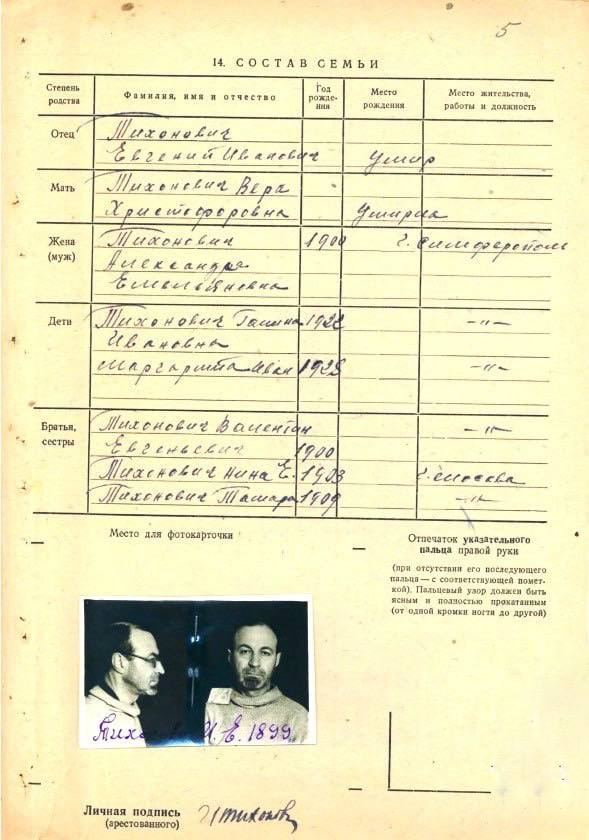 5
14. СОСТАВ СЕМЬИ
Степень родства Фамилия, имя и отчество Год рожде-ния Место рождения Место жительства, работы и должность
Отец Тихонович
Евгений Иванович умир
Мать Тихонович Вера
Христофоровна умирла
Жена (муж) Тихонович 1900 г. Симферополь
Александра
Емельяновна
Дети Тихонович Галина 1922 —"—
Ивановна
Маргарита Иван 1928 —"—
Братья, сестры Тихонович Валентин —"—
Евгеньевич 1900
Тихонович Нина Е. 1903 г. Москва
Тихонович Тамара 1909 —"—
Место для фотокарточки
Отпечаток указательного
пальца правой руки
(при отсутствии его последующего
пальца — с соответствующей помет-
кой). Пальцевый узор должен быть
ясным и полностью прокатанным
(от одной кромки ногтя до другой)
И. Е. 1899
Личная подпись
(арестованного)